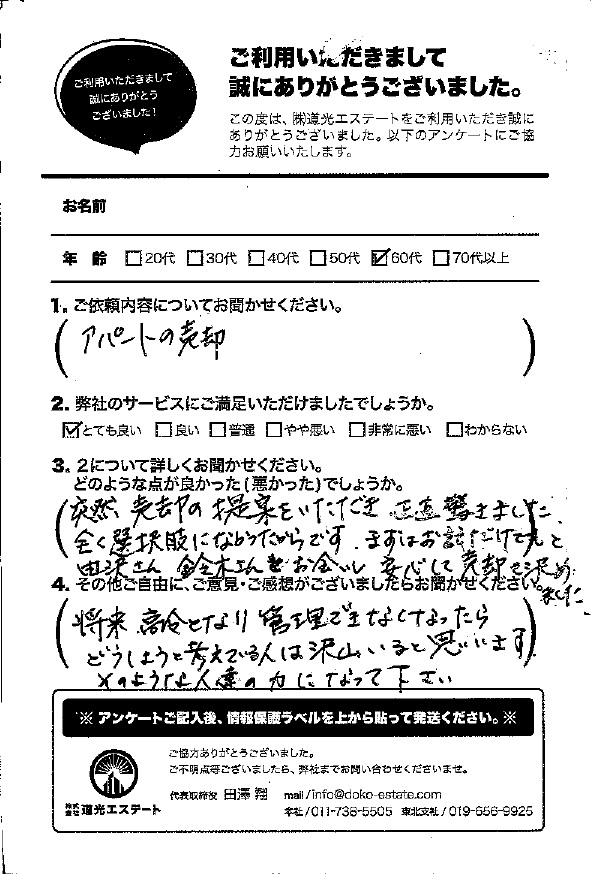 ご利用いただきまして
誠にありがとう
ございました!
ご利用いただきまして
誠にありがとうございました。
この度は、㈱道光エステートをご利用いただき誠に
ありがとうございました。以下のアンケートにご協
力お願いいたします。
お名前
年 齢 □20代 □30代 □40代 □50代 ☑60代 □70代以上
1. ご依頼内容についてお聞かせください。
(アパートの売却)
2. 弊社のサービスにご満足いただけましたでしょうか。
☑とても良い □良い □普通 □やや悪い □非常に悪い □わからない
3. 2について詳しくお聞かせください。
どのような点が良かった(悪かった)でしょうか。
(突然、売却の提案をいただき 正直驚きました。
全く選択肢になかったからです。まずはお話だけでもと
田沢さん 鈴木さんとお会いし 安心して売却を決め
ました。
4. その他ご自由に、ご意見・ご感想がございましたらお聞かせください。
(将来 高令となり 管理できなくなったら
どうしようと考えている人は沢山いると思います)
そのような人達の力になって下さい
※ アンケートご記入後、情報保護ラベルを上から貼って発送ください。※
ご協力ありがとうございました。
ご不明点等ございましたら、弊社までお問い合わせくださいませ。
代表取締役 田澤 翔 mail/info@doko-estate.com
株式会社 道光エステート
本社/011-738-5505 東北支社/019-656-9925